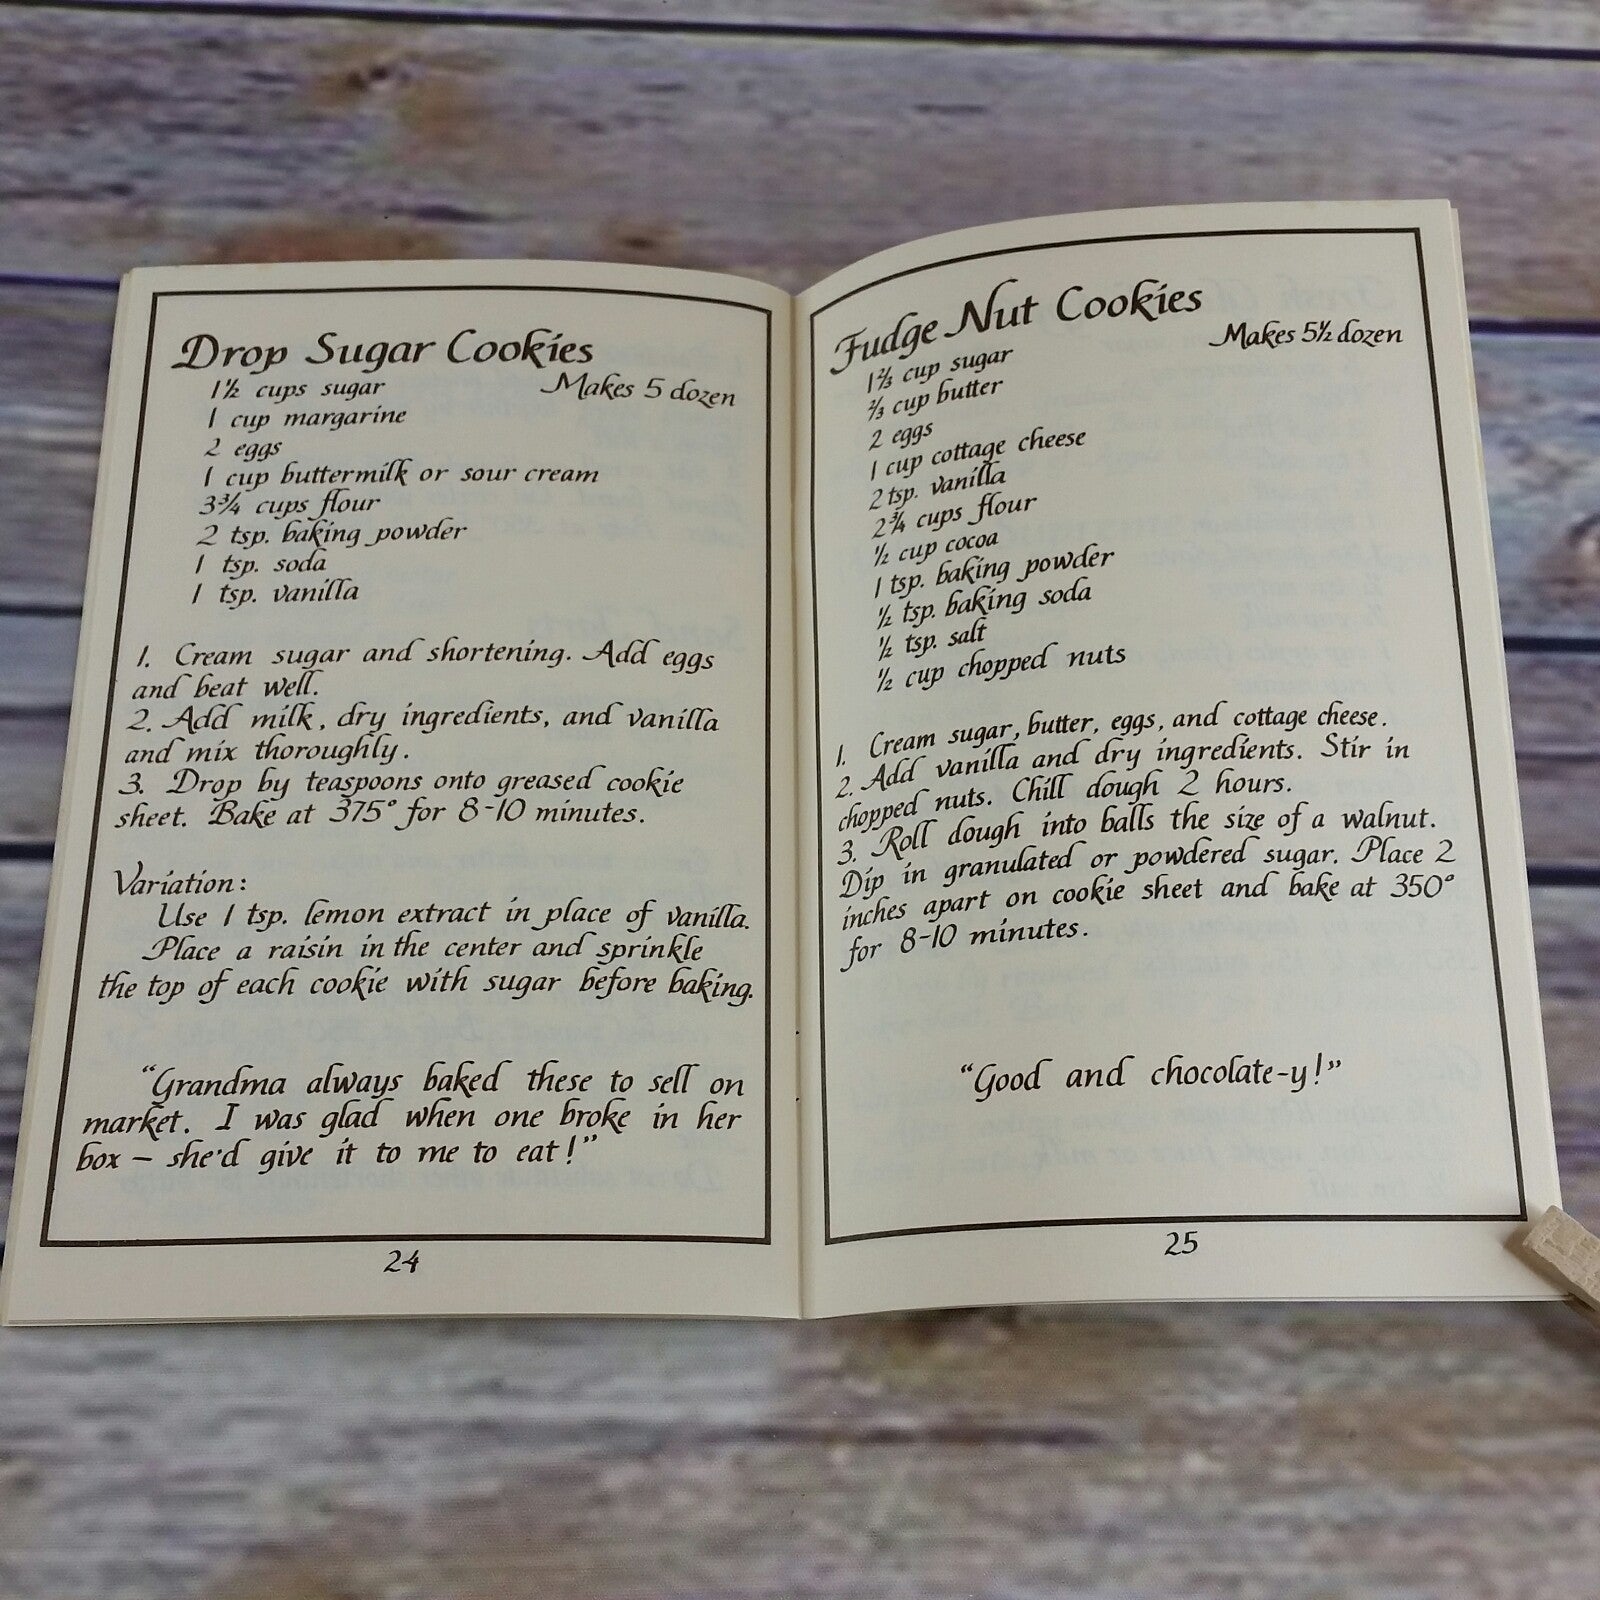 Drop Sugar Cookies
Makes 5 dozen
1½ cups sugar
1 cup margarine
2 eggs
1 cup buttermilk or sour cream
3¾ cups flour
2 tsp. baking powder
1 tsp. soda
1 tsp. vanilla
1. Cream sugar and shortening. Add eggs
and beat well.
2. Add milk, dry ingredients, and vanilla
and mix thoroughly.
3. Drop by teaspoons onto greased cookie
sheet. Bake at 375° for 8-10 minutes.
Variation:
Use 1 tsp. lemon extract in place of vanilla.
Place a raisin in the center and sprinkle
the top of each cookie with sugar before baking.
"Grandma always baked these to sell on
market. I was glad when one broke in her
box – she'd give it to me to eat!"
24
Fudge Nut Cookies
Makes 5½ dozen
1⅔ cup sugar
⅔ cup butter
2 eggs
1 cup cottage cheese
2 tsp. vanilla
2¾ cups flour
½ cup cocoa
1 tsp. baking powder
½ tsp. baking soda
½ tsp. salt
½ cup chopped nuts
1. Cream sugar, butter, eggs, and cottage cheese.
2. Add vanilla and dry ingredients. Stir in
chopped nuts. Chill dough 2 hours.
3. Roll dough into balls the size of a walnut.
Dip in granulated or powdered sugar. Place 2
inches apart on cookie sheet and bake at 350°
for 8-10 minutes.
"Good and chocolate-y!"
25